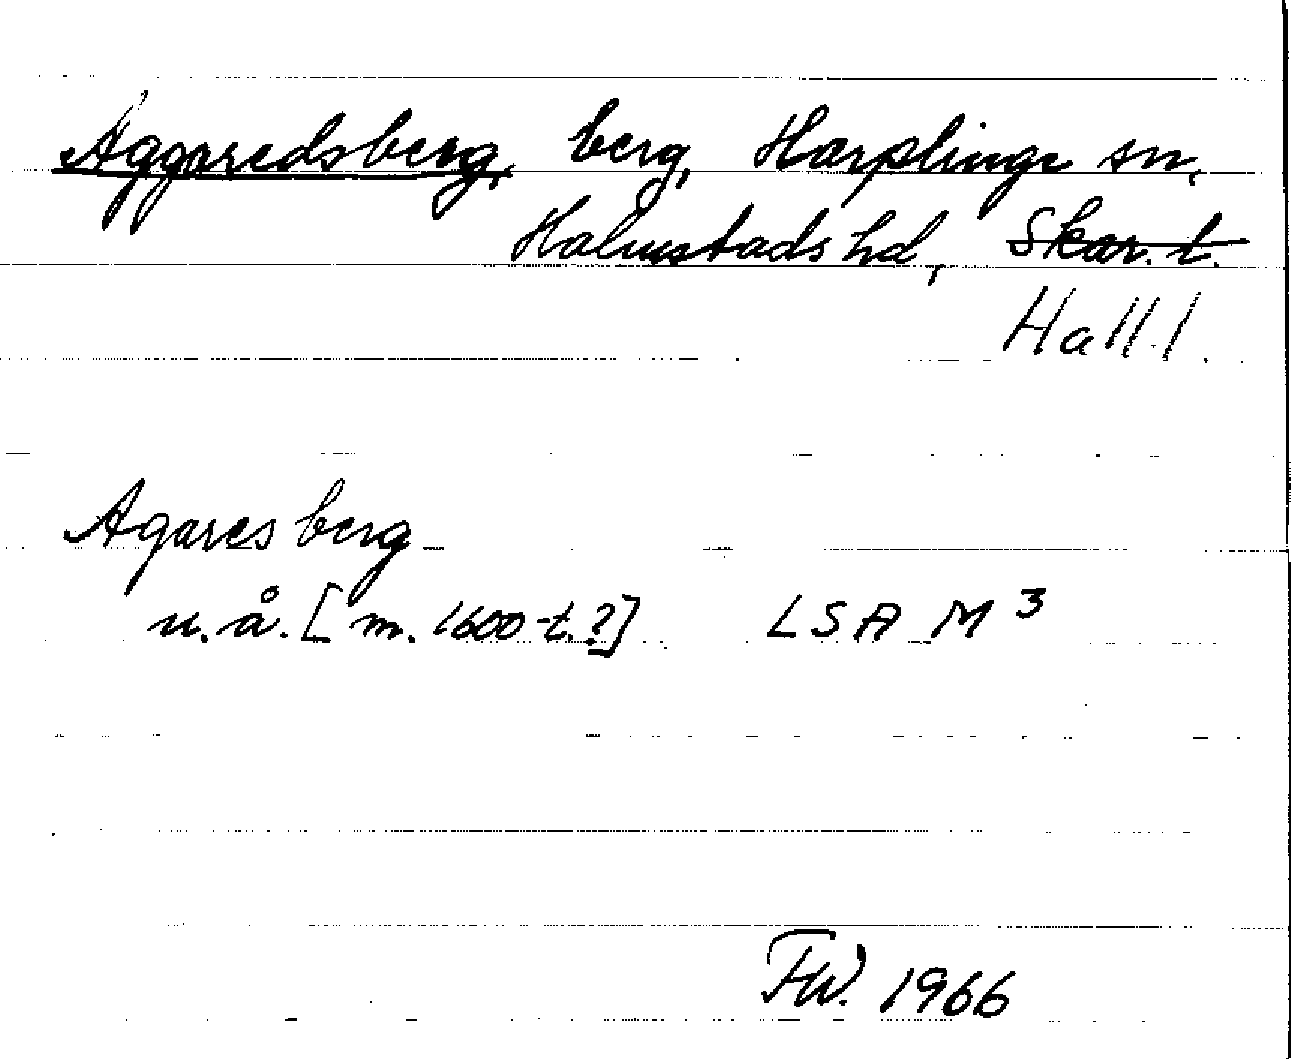 Aggaredsberg, berg, Harplinge sn,
Halmstads hd, Skar. l.
Hall.l.
Agares berg
u.å. [m. 1600-t.?] LSA M 3
FW. 1966